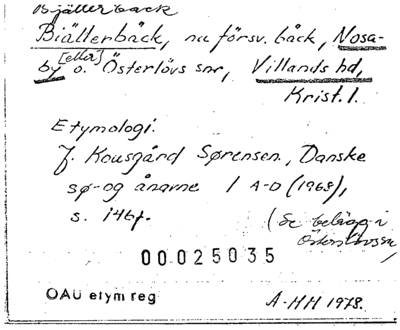 Bjällerbäck
Biällerbäck, nu försv. bäck, Nosa-
by [eller] o. Österlövs snr, Villands hd,
Krist. l.
Etymologi:
J. Kousgård Sørensen, Danske
sø- og ånavne 1 A-D (1968),
s. 146f.
(Se belägg i
Österlövssn,
00025035
OAU etym reg
A-HH 1978.